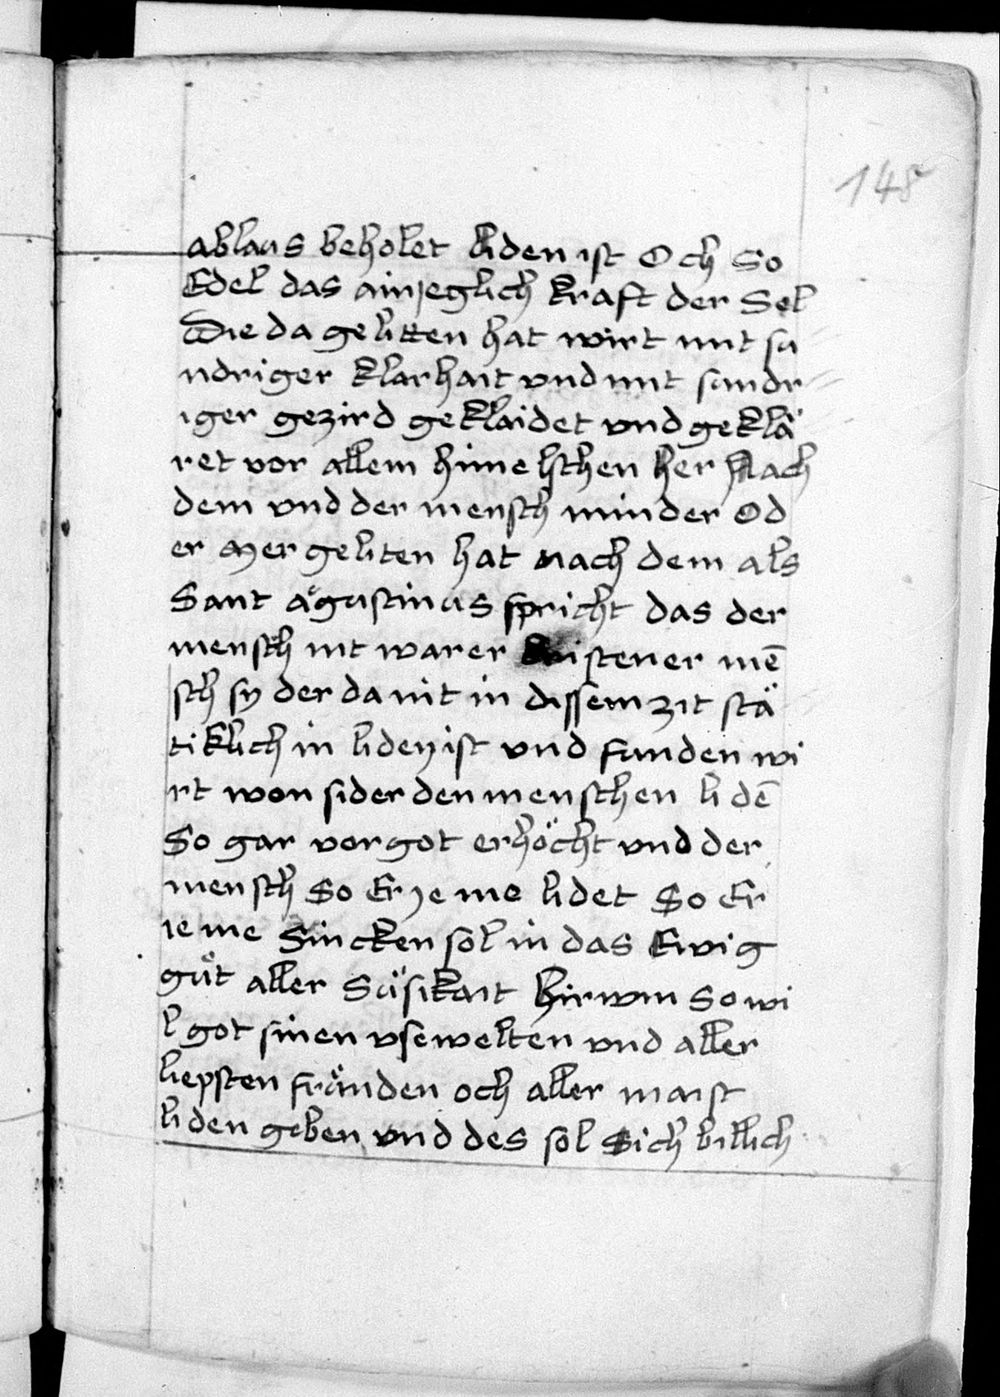 148
ablaus beholet liden ist Och So
Edel das ainjeglich kraft der Sel
Die da gelitten hat wirt mit su
ndriger klarhait vnd mit sundr
iger gezird geklaidet vnd geklä
ret vor allem himelschen her Nach
dem vnd der mensch minder Od
er mer geliten hat nach dem als
Sant agustinus spricht das der
mensch nit warer kristener mē
sch sy der da nit in dissem zit stä
tiklich in liden ist vnd funden wi
rt won sider den menschen lidē
So gar vor got erhöcht vnd der
mensch So Er je me lidet So Er
ie me Sincken sol in das Ewig
guͦt aller Süsikait hirvm So wi
l got sinen vsewelten vnd aller
liepsten fründen och aller maist
liden geben vnd des sol Sich billich